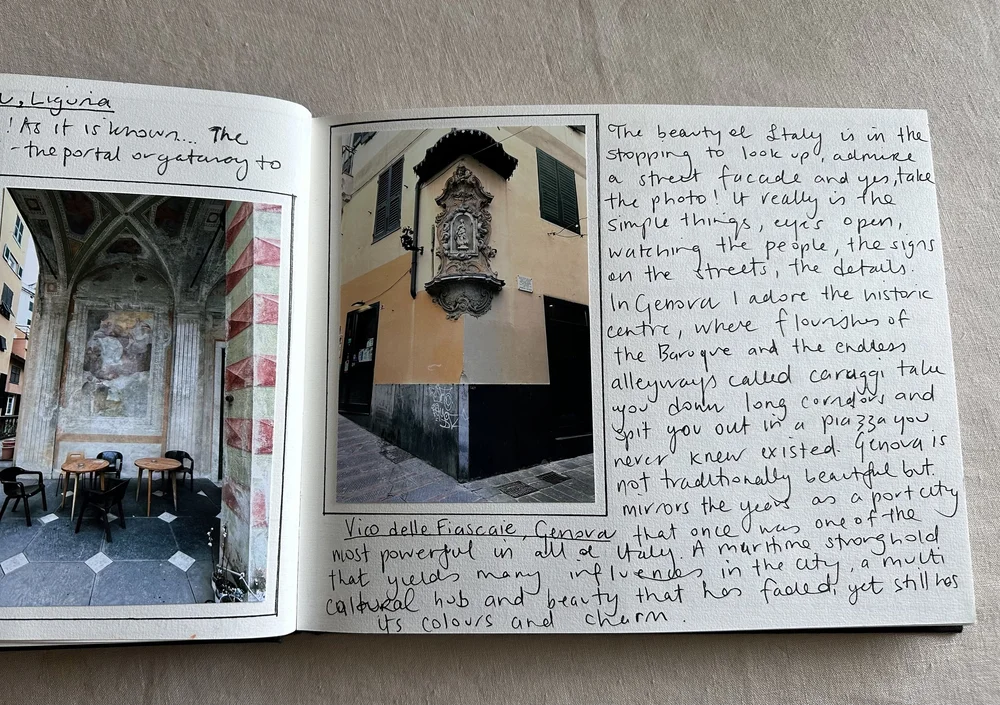 , Liguria
! As it is known.... The
- the portal or gateway to
The beauty of Italy is in the
stopping to look up, admire
a street facade and yes, take
the photo! It really is the
simple things, eyes open,
watching the people, the signs
on the streets, the details.
In Genova I adore the historic
centre, where flourishes of
the Baroque and the endless
alleyways called caruggi take
you down long corridors and
spit you out in a piazza you
never knew existed. Genova is
not traditionally beautiful but
mirrors the years as a port city
Vico delle Fiascaie, Genova that once was one of the
most powerful in all of Italy. A maritime stronghold
that yields many influences in the city, a multi
cultural hub and beauty that has faded, yet still has
its colours and charm.